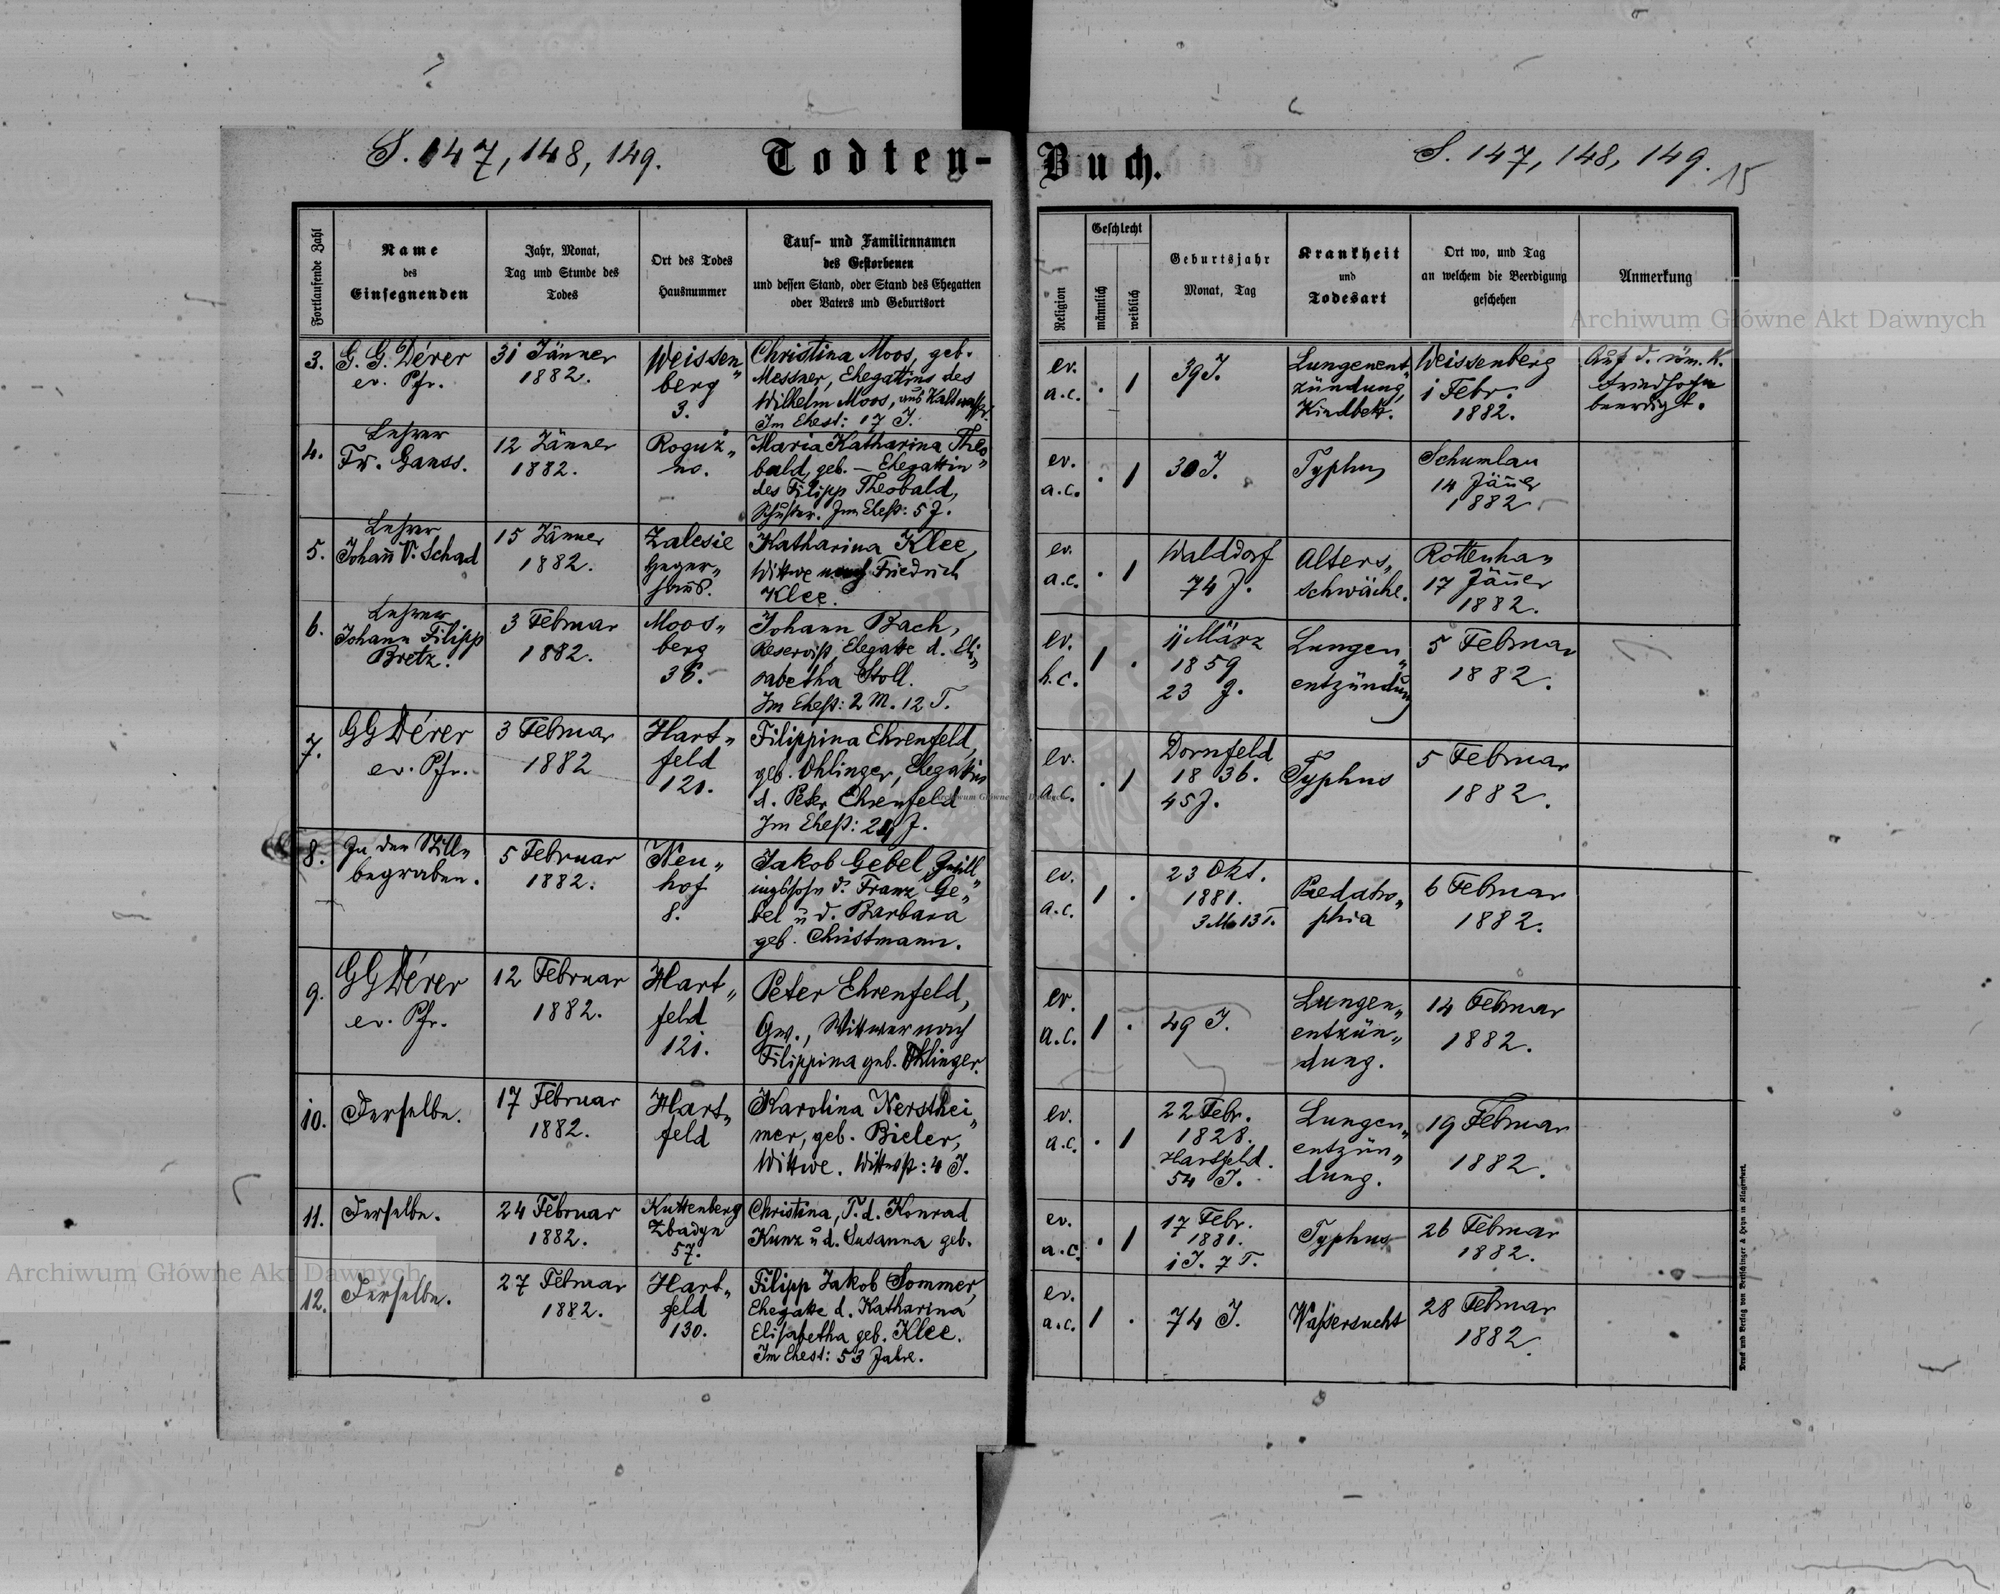 S. 147, 148, 149.
Todten-
Buch.
S. 147, 148, 149.
15
Fortlaufende Zahl
Name
des
Einsegnenden
Jahr, Monat,
Tag und Stunde des
Todes
Ort des Todes
Hausnummer
Tauf- und Familiennamen
des Gestorbenen
und dessen Stand, oder Stand des Ehegatten
oder Vaters und Geburtsort
Religion
Geschlecht
männlich
weiblich
Geburtsjahr
Monat, Tag
Krankheit
und
Todesart
Ort wo, und Tag
an welchem die Beerdigung
geschehen
Anmerkung
3.
G. G. Dérer
ev. Pfr.
31 Jänner
1882.
Weissen„
berg
3.
Christina Moos, geb.
Messner, Ehegattin des
Wilhelm Moos, aus Kaltwasser.
Im Ehest: 17 J.
ev.
a.c.
. 1
39 J.
Lungenent„
zündung,
Kindbett.
Weissenberg
1 Febr.
1882.
Auf d. röm. k.
Friedhofe
beerdigt.
4.
Lehrer
Fr. Ganss.
12 Jänner
1882.
Roguź„
no.
Maria Katharina Theo„
bald, geb. — Ehegattin
des Filipp Theobald,
Schuster. Im Ehest: 5 J.
ev.
a.c.
. 1
30 J.
Typhus
Schumlau
14 Jänner
1882.
5.
Lehrer
Johann V. Schad
15 Jänner
1882.
Zalesie
Heger„
haus.
Katharina Klee,
Wittwe nach Friedrich
Klee.
ev.
a.c.
. 1
Walddorf
74 J.
Alters„
schwäche.
Rottenhan
17 Jänner
1882.
6.
Lehrer
Johann Filipp
Bretz.
3 Februar
1882.
Moos„
berg
36.
Johann Bach,
Reservist, Ehegatte d. Eli„
sabetha Stoll.
Im Ehest: 2 M. 12 T.
ev.
h.c.
1 .
11 März
1859
23 J.
Lungen„
entzündung
5 Februar
1882.
7.
GG Dérer
ev. Pfr.
3 Februar
1882
Hart„
feld
121.
Filippina Ehrenfeld,
geb. Ohlinger, Ehegattin
d. Peter Ehrenfeld
Im Ehest: J.
ev.
a.c.
. 1
Dornfeld
1836.
45 J.
Typhus
5 Februar
1882.
8.
In der Stille
begraben.
5 Februar
1882.
Neu„
hof
8.
Jakob Gebel, Zwill„
ingssohn d. Franz Ge„
bel u d. Barbara
geb. Christmann.
ev.
a.c.
1 .
23 Okt.
1881.
3 M. 13 T.
Pedatro„
phia
6 Februar
1882.
9.
GG Dérer
ev. Pfr.
12 Februar
1882.
Hart„
feld
121.
Peter Ehrenfeld,
Gw., Wittwer nach
Filippina geb. Ohlinger.
ev.
a.c.
1 .
49 J.
Lungen„
entzün„
dung.
14 Februar
1882.
10.
Derselbe.
17 Februar
1882.
Hart„
feld
Karolina Nersthei„
mer, geb. Bieler,
Wittwe. Wittwst: 4 J.
ev.
a.c.
. 1
22 Febr.
1828.
Hartfeld.
54 J.
Lungen„
entzün„
dung.
19 Februar
1882.
11.
Derselbe.
24 Februar
1882.
Kuttenberg
Zbadyn
57.
Christina, T. d. Konrad
Kunz u d. Susanna geb.
ev.
a.c.
. 1
17 Febr.
1881.
1 J. 7 T.
Typhus
26 Februar
1882.
12.
Derselbe.
27 Februar
1882.
Hart„
feld
130.
Filipp Jakob Sommer,
Ehegatte d. Katharina
Elisabetha geb. Klee.
Im Ehest: 53 Jahre.
ev.
a.c.
1 .
74 J.
Wassersucht
28 Februar
1882.
Druck und Verlag von Bertschinger & Heyn in Klagenfurt.
Archiwum Główne Akt Dawnych
Archiwum Główne Akt Dawnych
Archiwum Główne Akt Dawnych